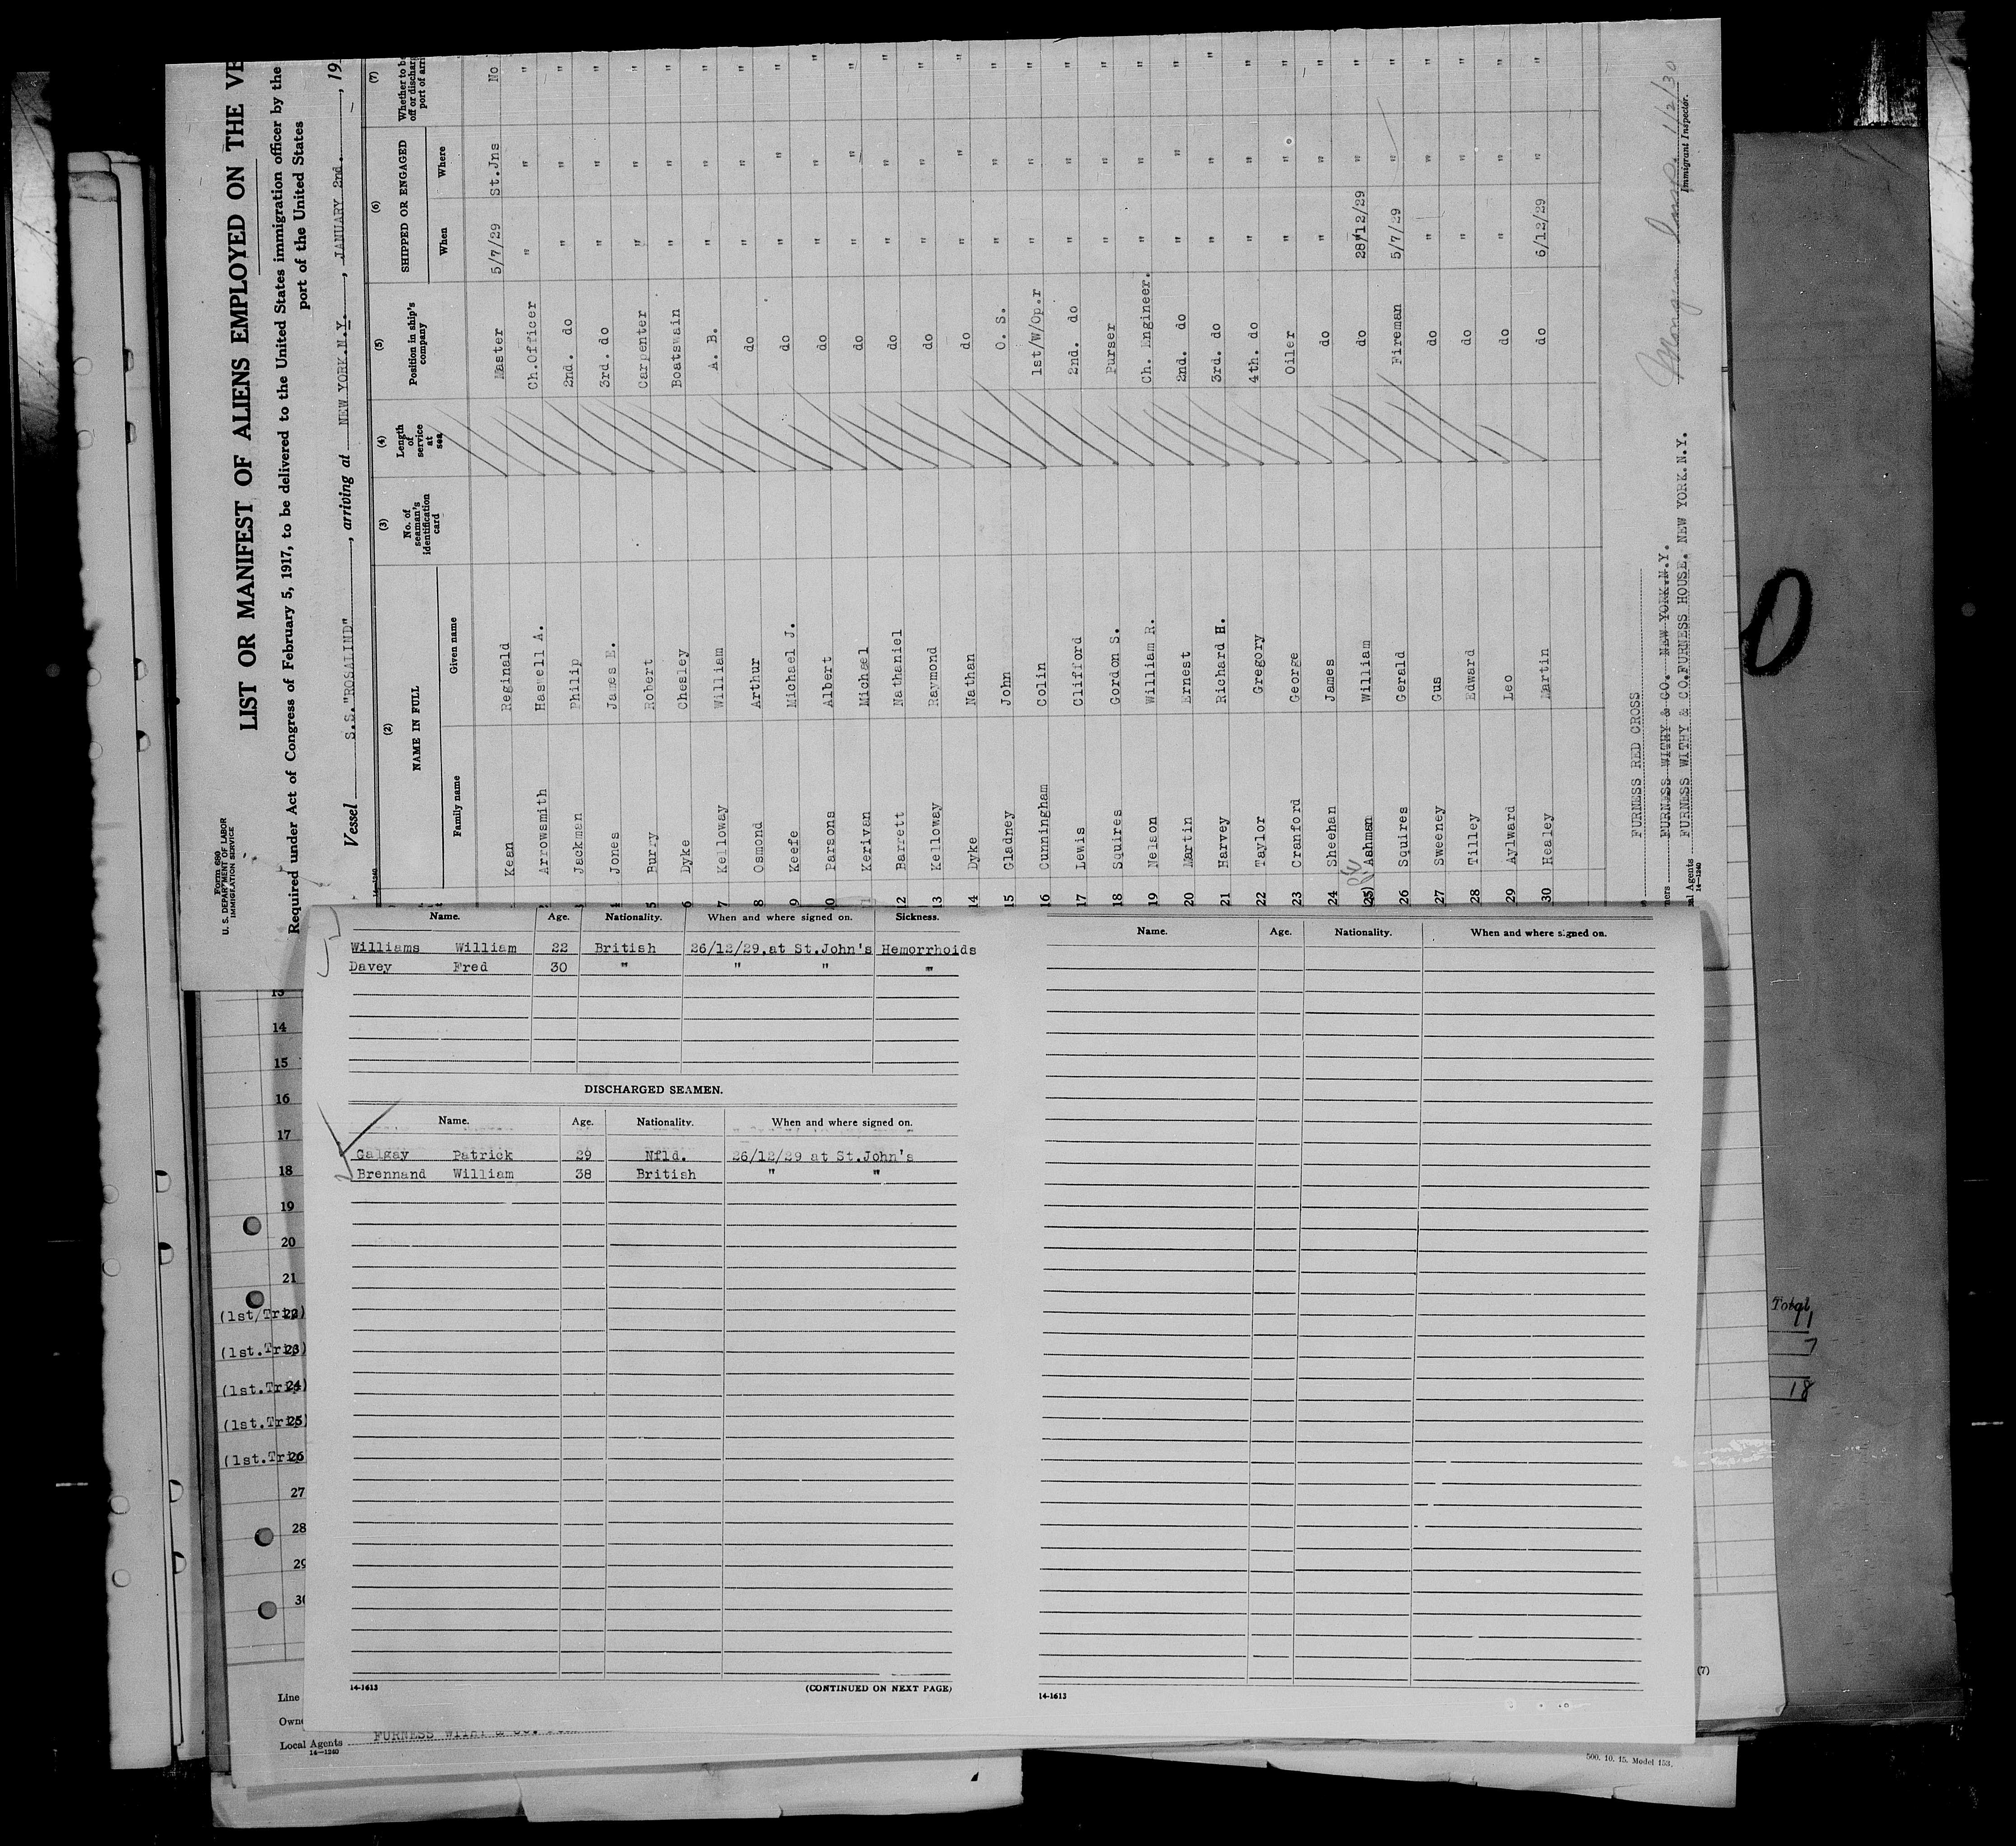 LIST OR MANIFEST OF ALIENS EMPLOYED ON THE VE
Form 680
U. S. DEPARTMENT OF LABOR
IMMIGRATION SERVICE
Required under Act of Congress of February 5, 1917, to be delivered to the United States immigration officer by the
port of the United States
Vessel S.S."ROSALIND", arriving at NEW YORK.N.Y., JANUARY 2nd., 19
14—1240
(2) (3) (4) (5) (6) (7)
NAME IN FULL No. of seaman's identification card Length of service at sea Position in ship's company SHIPPED OR ENGAGED Whether to be off or discharg port of arri
Family name Given name When Where
Kean Reginald Master 5/7/29 St.Jns No
Arrowsmith Haswell A. Ch.Officer " " "
Jackman Philip 2nd. do " " "
Jones James E. 3rd. do " " "
5 Burry Robert Carpenter " " "
6 Dyke Chesley Boatswain " " "
7 Kelloway William A. B. " " "
8 Osmond Arthur do " " "
9 Keefe Michael J. do " " "
10 Parsons Albert do " " "
11 Kerivan Michael do " " "
12 Barrett Nathaniel do " " "
13 Kelloway Raymond do " " "
14 Dyke Nathan do " " "
15 Gladney John O. S. " " "
16 Cunningham Colin 1st/W/Op.r " " "
17 Lewis Clifford 2nd. do " " "
18 Squires Gordon S. Purser " " "
19 Nelson William R. Ch. Engineer. " " "
20 Martin Ernest 2nd. do " " "
21 Harvey Richard H. 3rd. do " " "
22 Taylor Gregory 4th. do " " "
23 Cranford George Oiler " " "
24 Sheehan James do " " "
(25) Ashman William do 28/12/29 " "
26 Squires Gerald Fireman 5/7/29 " "
27 Sweeney Gus do " " "
28 Tilley Edward do " " "
29 Aylward Leo do " " "
30 Healey Martin do 6/12/29 " "
FURNESS RED CROSS
ners FURNESS WITHY & CO. NEW YORK.N.Y.
al Agents FURNESS WITHY & CO.FURNESS HOUSE. NEW YORK.N.Y.
14—1240
1/2/30
Immigrant Inspector.
Name. Age. Nationality. When and where signed on. Sickness.
Williams William 22 British 26/12/29.at St.John's Hemorrhoids
Davey Fred 30 " " " "
DISCHARGED SEAMEN.
Name. Age. Nationality. When and where signed on.
Galgay Patrick 29 Nfld. 26/12/29 at St.John's
Brennand William 38 British " "
14-1613
(CONTINUED ON NEXT PAGE)
Name. Age. Nationality. When and where signed on.
14-1613
13
14
15
16
17
18
19
20
21
(1st/Trip) 22
(1st.Trip) 23
(1st.Trip) 24
(1st.Trip) 25
(1st.Trip 26
27
28
29
30
Line
Owne
Local Agents FURNESS WITHY & CO.
14—1240
(7)
0
Total
11
7
18
500. 10. 15. Model 153.